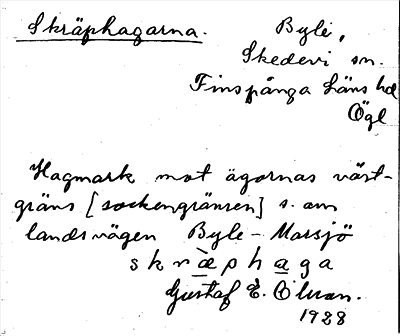 Skräphagarna.
Byle,
Skedevi sn.
Finspånga läns hd
Ögl
Hagmark mot ägornas väst-
gräns [sockengränsen] s. om
landsvägen Byle - Marsjö
skræphaga
Gustaf E.
1928